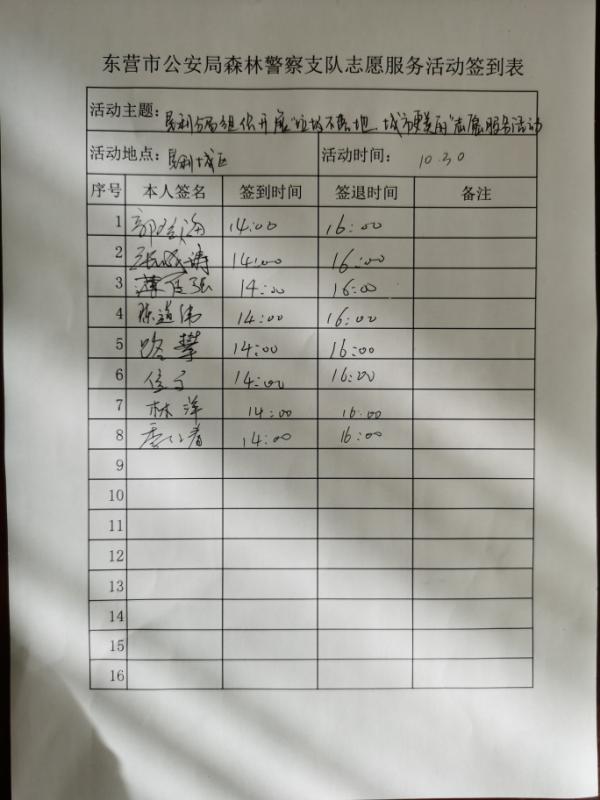 东营市公安局森林警察支队志愿服务活动签到表
活动主题：垦利分局组织开展"垃圾不落地 城市更美丽"志愿服务活动
活动地点：垦利城区 活动时间：10.30
序号 本人签名 签到时间 签退时间 备注
1 14:00 16:00
2 张晓涛 14:00 16:00
3 薄传强 14:00 16:00
4 陈道伟 14:00 16:00
5 路攀 14:00 16:00
6 14:00 16:00
7 林洋 14:00 16:00
8 14:00 16:00
9
10
11
12
13
14
15
16